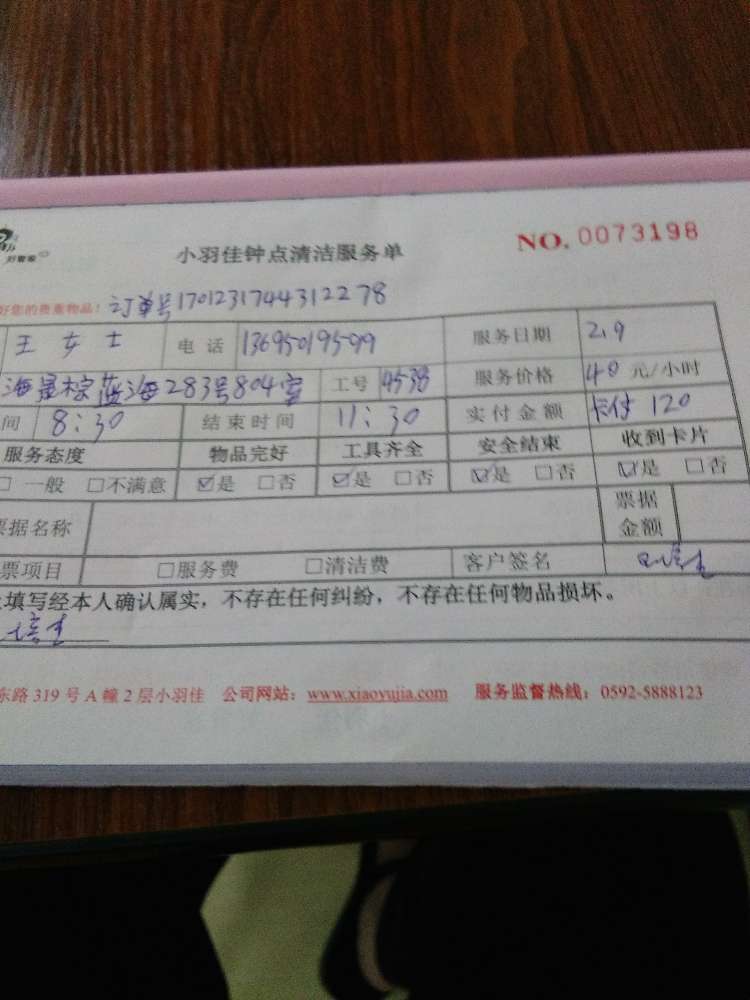 好管家
小羽佳钟点清洁服务单 NO. 0073198
好您的贵重物品! 订单号1701231744312278
王女士 电话 13695019599 服务日期 2.9
283号804室 工号 服务价格 40 元/小时
间 8:30 结束时间 11:30 实付金额 卡付 120
服务态度 物品完好 工具齐全 安全结束 收到卡片
□ 一般 □不满意 ☑是 □否 ☑是 □否 ☑是 □否 ☑是 □否
票据名称 票据金额
票项目 □服务费 □清洁费 客户签名
填写经本人确认属实，不存在任何纠纷，不存在任何物品损坏。
东路 319 号 A 幢 2 层小羽佳 公司网站：www.xiaoyujia.com 服务监督热线：0592-5888123